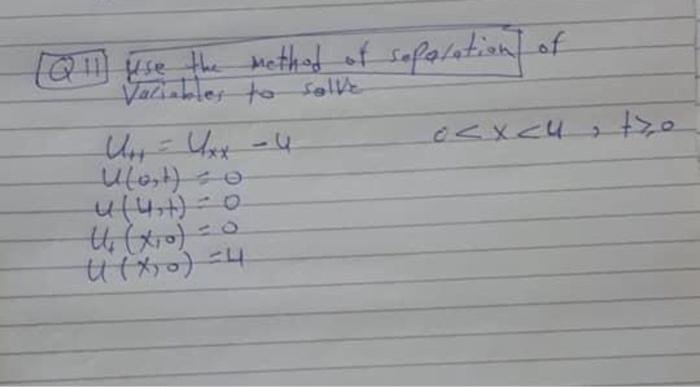 Q11 use the method of separation of
Variables to solve
Utt = Uxx - 4 0 < x < 4 , t ≥ 0
U(0,t) = 0
U(4,t) = 0
Ut(x,0) = 0
U(x,0) = 4